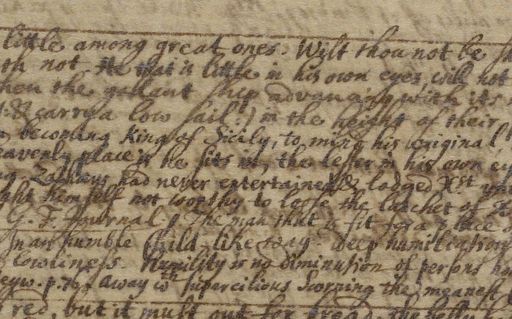 little among great ones. Wilt thou not be
th not. He that is little in his own eyes will not
hen the gallant ship advancing with its
& carry a low sail:) in the height of their
becoming King of Sicily, to mind his original
eavenly place is he sits in, the lesser in his own ey
Zacheus had never entertained & lodged Xst
ght himself not worthy to loose the latchet of
G. F. Journal The man that is fit for a place of
In an humble Child-like way. deep humiliation
lowliness. Humility is no diminution of persons ho
away w supercilious scorning the meanest
red, but it must out for bread. the belly